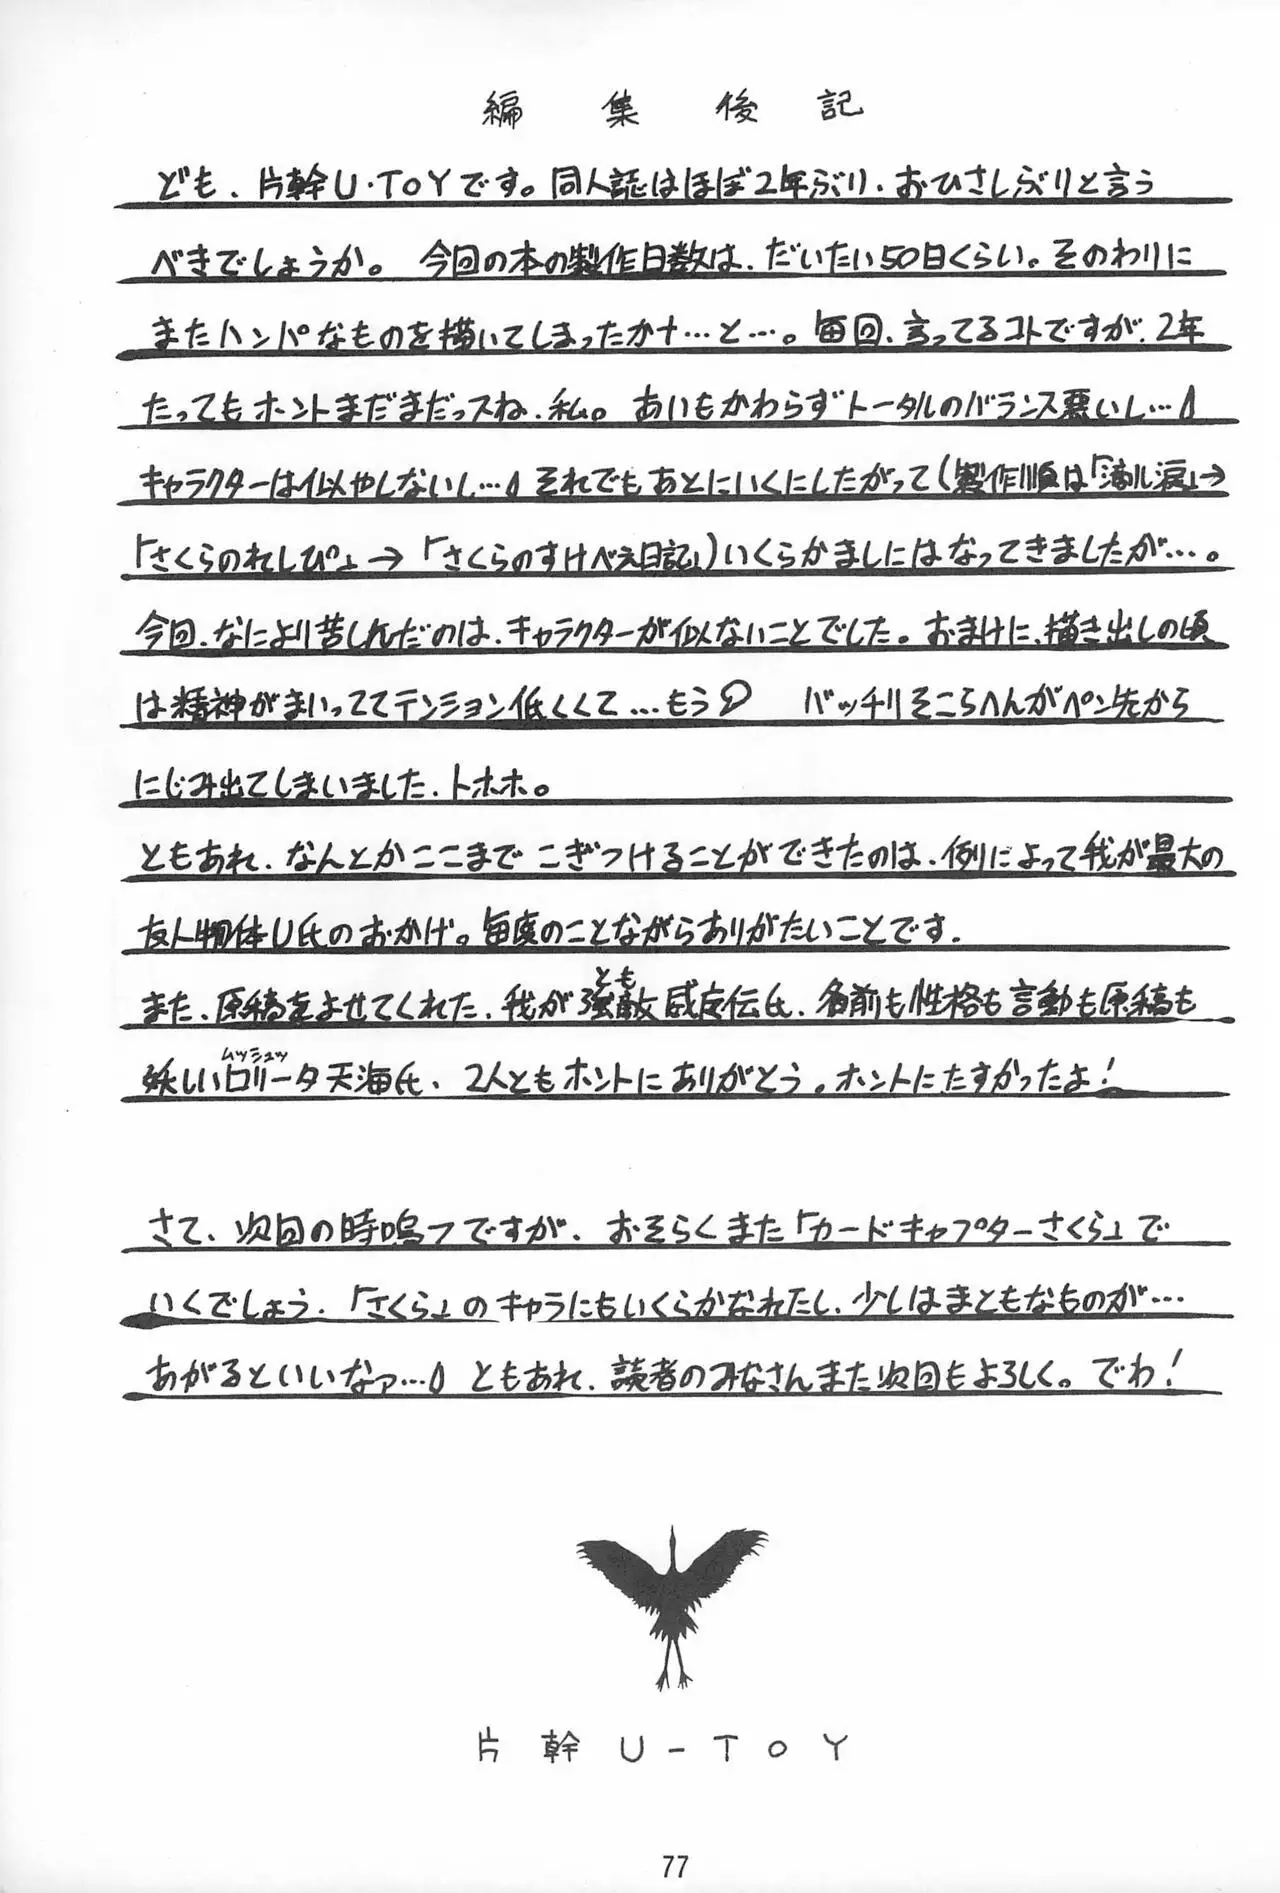 編集後記
ども、片幹U・ToYです。同人誌はほぼ2年ぶり、おひさしぶりと言う
べきでしょうか。今回の本の製作日数は、だいたい50日くらい。そのわりに
またハンパなものを描いてしまったかナ…と…。毎回、言ってるコトですが、2年
たってもホントまだまだっスね、私。あいもかわらずトータルのバランス悪いし…
キャラクターは似やしないし… それでもあとにいくにしたがって(製作順は「滴ル涙」→
「さくらのれしぴ」→「さくらのすけべえ日記」)いくらかましにはなってきましたが…。
今回、なにより苦しんだのは、キャラクターが似ないことでした。おまけに、描き出しの頃
は精神がまいっててテンション低くくて…もう バッチリそこらへんがペン先から
にじみ出てしまいました、トホホ。
ともあれ、なんとかここまでこぎつけることができたのは、例によって我が最大の
友人物体U氏のおかげ。毎度のことながらありがたいことです.
とも
また、原稿をよせてくれた、我が強敵感応伝氏、名前も性格も言動も原稿も
ムッシュッ
妖しいロリータ天海氏、2人ともホントにありがとう。ホントにたすかったよ!
さて、次回の時鳴フですが、おそらくまた「カードキャプターさくら」で
いくでしょう、「さくら」のキャラにもいくらかなれたし、少しはまともなものが…
あがるといいなァ… ともあれ、読者のみなさんまた次回もよろしく。でわ!
片幹U-ToY
77